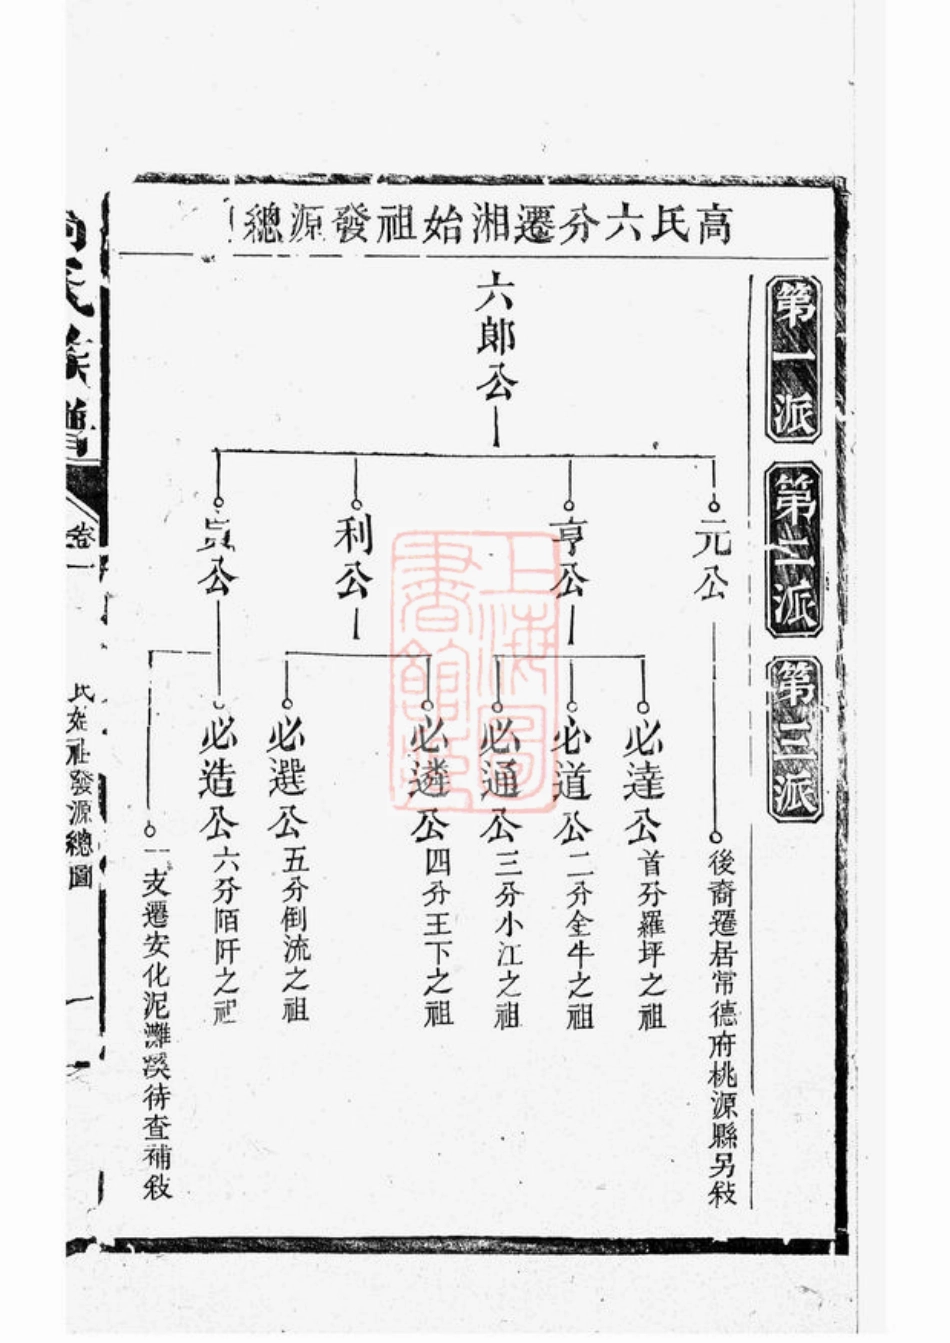 高氏六分遷湘始祖發源總
第一派
第二派
第三派
六郞公
元公
後裔遷居常德府桃源縣另敍
亨公
必達公
首分羅坪之祖
必道公
二分金牛之祖
必通公
三分小江之祖
利公
必遴公
四分王下之祖
必選公
五分倒流之祖
貞公
必造公
六分陌阡之祖
一支遷安化泥灘溪待查補敍
氏族譜
卷一
氏始祖發源總圖
一
上海圖書館藏